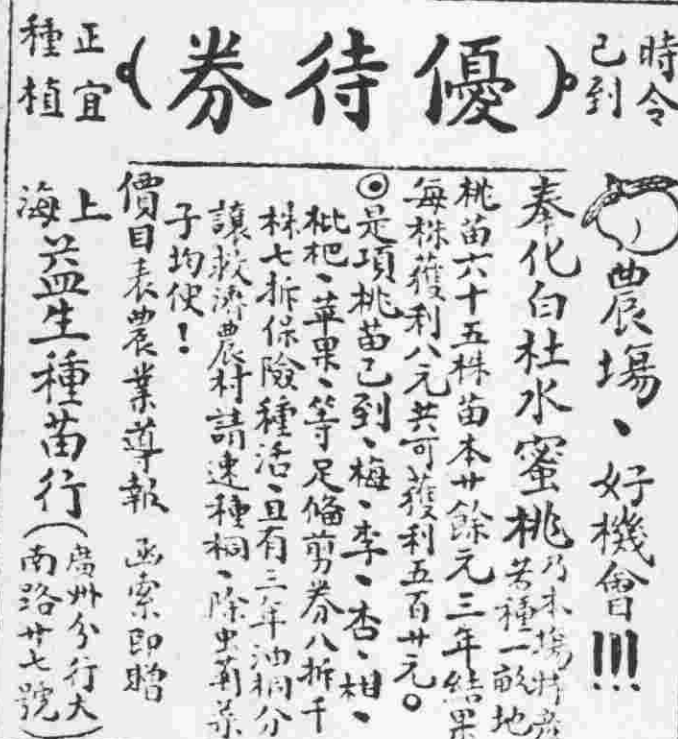 時令
已到
優待券
正宜
種植
農塲、好機會!!!
奉化白杜水蜜桃乃本塲特產
若種一畝地
桃苗六十五株苗本廿餘元三年結果
每株獲利八元共可獲利五百廿元。
◉是項桃苗已到、梅、李、杏、柑、
枇杷、苹果、等足備剪券八折千
株七折保險種活、且有三年油桐分
讓救濟農村請速種桐、除虫菊菜
子均便!
價目表農業導報 函索即贈
上海益生種苗行
(廣州分行大
南路廿七號)